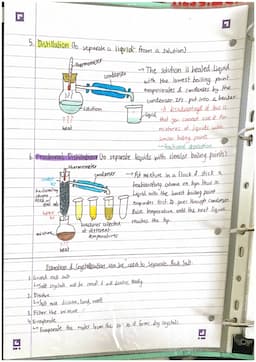 5. Distillation (to separate a liquid from a solution)
thermometer
condenser
solution
liquid
heat
→ The solution is heated liquid
with the lowest boiling point
evaporates & condenses by the
condenser. It's put into a beaker.
→ A disadvantage of this is
that you cannot use it for
mixtures of liquids with
similar boiling points.
6. Fractional Distillation (to separate liquids with similar boiling points)
thermometer
condenser
mixture
heat
fractions collected
at different
temperatures
→ Put mixture in a flask & stick a
fractionating column on top then the
liquid with the lowest boiling point
evaporates first & goes through condenser
Raise temperature until the next liquid
reaches the top.
Filtration & Crystallisation can be used to separate Rock Salt.
1. Grind rock salt
2. Dissolve
→ Salt will dissolve, sand won't
3. Filter the mixture
4. Evaporate
→ Evaporate the water from the so it forms dry crystals.